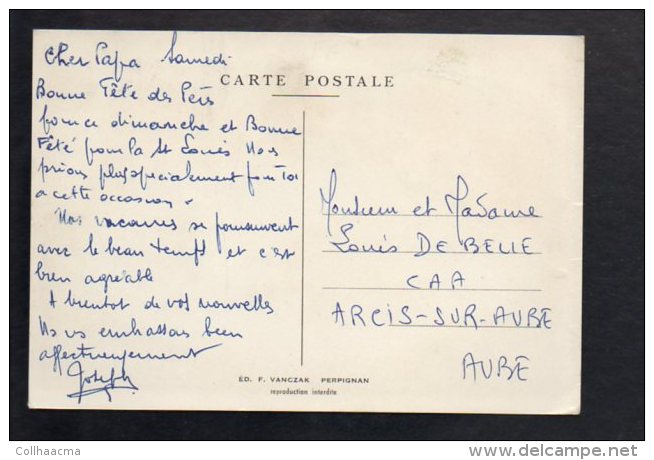 Cher Papa Samedi
CARTE POSTALE
Bonne Fête des Pères
pour ce dimanche et Bonne
Fête pour la St Louis Nous
prions plus specialement pour toi
a cette occasion.
Nos vacances se poursuivent
avec le beau temps et c'est
bien agréable
A bientot de vos nouvelles
Ns vs embrassons bien
affectueusement
Joseph
Monsieur et Madame
Louis DE BELIE
CAA
ARCIS-SUR-AUBE
AUBE
ÉD. F. VANCZAK PERPIGNAN
reproduction interdite
Collhaacma
www.delcampe.net